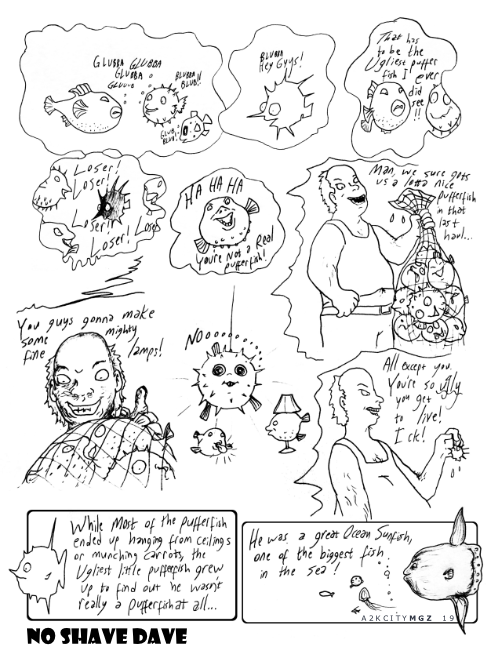 GLUBBA GLUBBA
GLUBBA
BLUBBA
BLUB..
GLUB..
BLUB..
BLUBBA
HEY GUYS!
That has
to be the
Ugliest puffer
fish I ever
did
see
!!
Loser!
Loser!
Loser!
Loser!! Loser! Loser
HA HA HA
You're Not a Real
pufferfish!
Man, we sure gots
us a lotta nice
pufferfish
in that
last
haul...
You guys gonna make
some mighty
fine lamps!
NOooooo
All except you.
You're so ugly
you get
to live!
Ick!
While Most of the pufferfish
ended up hanging from ceilings
or munching carrots, the
Ugliest little pufferfish grew
up to find out he wasn't
really a pufferfish at all...
He was a great Ocean Sunfish,
one of the biggest fish
in the sea!
A2KCITYMGZ 19
NO SHAVE DAVE